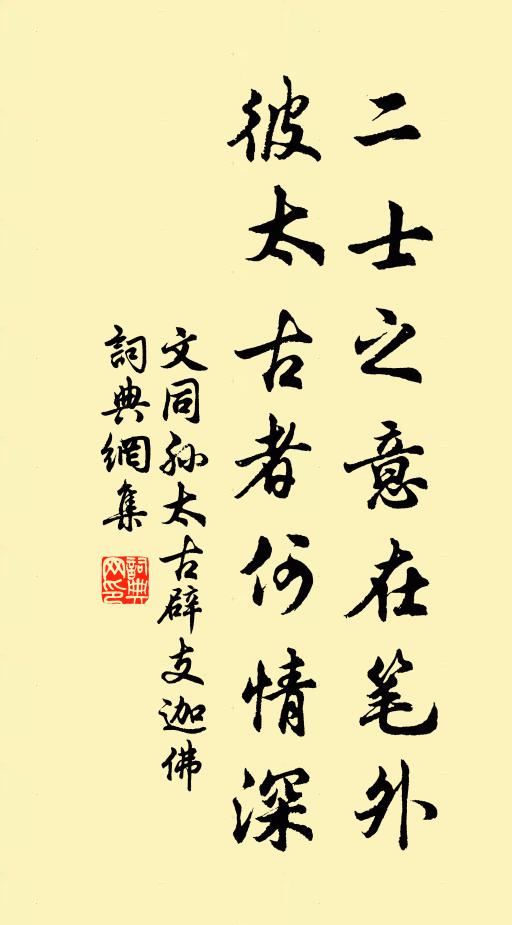 二士之意在笔外
彼太古者何情深
文同孙太古辟支迦佛
詞典網集
詞典
网印